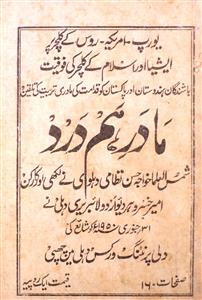 یورپ۔ امریکہ۔ روس کے کلچر پر
ایشیا اور اسلام کے کلچر کی فوقیت
باشندگان ہندوستان اور پاکستان کو قدامت کی مادری تربیت کی تلقین
مادر ہمدرد
شمس العلماء خواجہ حسن نظامی دہلوی نے لکھی اور کارکن
امیر خسرو اردو لائبریری دہلی نے
۳۱ جنوری ۱۹۵۰ء کو شائع کی
دلی پرنٹنگ ورکس دہلی میں چھپی
صفحات ۱۶۰ قیمت ایک روپیہ